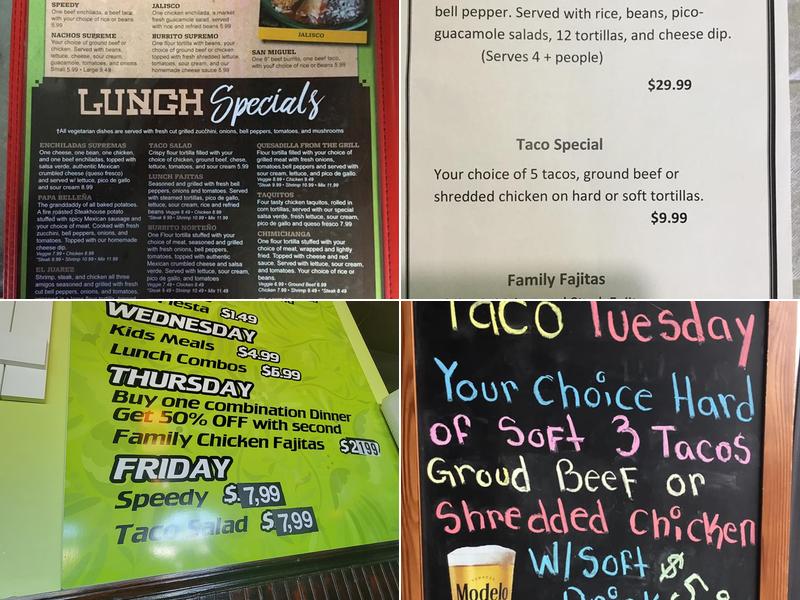 SPEEDY
One beef enchilada, a beef taco,
with your choice of rice or beans
5.99
NACHOS SUPREME
Your choice of ground beef or
chicken. Served with beans,
lettuce, cheese, sour cream,
guacamole, tomatoes, and onions
Small 5.99 • Large 9.49
JALISCO
One chicken enchilada, a market
fresh guacamole salad, served
with rice and refried beans 8.99
BURRITO SUPREMO
One flour tortilla with beans, your
choice of ground beef or chicken
topped with fresh shredded lettuce,
tomatoes, sour cream, and our
homemade cheese sauce 8.99
JALISCO
SAN MIGUEL
One 8" beef burrito, one beef taco,
with your choice of rice or Beans 8.99
LUNCH Specials
†All vegetarian dishes are served with fresh cut grilled zucchini, onions, bell peppers, tomatoes, and mushrooms
ENCHILADAS SUPREMAS
One cheese, one bean, one chicken,
and one beef enchiladas, topped with
salsa verde, authentic Mexican
crumbled cheese (queso fresco)
and served w/ lettuce, pico de gallo
and sour cream 8.99
PAPA BELLEÑA
The granddaddy of all baked potatoes.
A fire roasted Steakhouse potato
stuffed with spicy Mexican sausage and
your choice of meat. Cooked with fresh
zucchini, onions, bell peppers, and
tomatoes. Topped with our homemade
cheese dip.
Veggie 7.99 • Chicken 8.99
*Steak 9.99 • Shrimp 10.99 • Mix 11.99
EL JUAREZ
Shrimp, steak, and chicken all three
amigos seasoned and grilled with fresh
cut bell peppers, onions, and tomatoes.
TACO SALAD
Crispy flour tortilla filled with your
choice of chicken, ground beef, cheese,
lettuce, tomatoes, and sour cream 5.99
LUNCH FAJITAS
Seasoned and grilled with fresh bell
peppers, onions and tomatoes. Served
with steamed tortillas, pico de gallo,
lettuce, sour cream, rice and refried
beans Veggie 8.49 • Chicken 8.99
*Steak 9.99 • Shrimp 10.99 • Mix 11.99
BURRITO NORTEÑO
One Flour tortilla stuffed with your
choice of meat, seasoned and grilled
with fresh onions, bell peppers,
tomatoes, topped with authentic
Mexican crumbled cheese and salsa
verde. Served with lettuce, sour cream,
pico de gallo, and tomatoes
QUESADILLA FROM THE GRILL
Flour tortilla filled with your choice of
grilled meat with fresh onions,
tomatoes,bell peppers and served with
sour cream, lettuce, and pico de gallo.
Veggie 8.99 • Chicken 9.49
*Steak 9.99 • Shrimp 10.99 • Mix 11.99
TAQUITOS
Four tasty chicken taquitos, rolled in
corn tortillas, served with our special
salsa verde, fresh lettuce, sour cream,
pico de gallo and queso fresco 7.99
CHIMICHANGA
One flour tortilla stuffed with your
choice of meat, wrapped and lightly
fried. Topped with cheese and red
sauce. Served with lettuce, sour cream,
and tomatoes. Your choice of rice or
beans.
Veggie 6.99 • Ground Beef 6.99
Chicken 7.99 • Shrimp 9.49 • *Steak 8.49
bell pepper. Served with rice, beans, pico-
guacamole salads, 12 tortillas, and cheese dip.
(Serves 4 + people)
$29.99
Taco Special
Your choice of 5 tacos, ground beef or
shredded chicken on hard or soft tortillas.
$9.99
Family Fajitas
Fiesta $1.49
WEDNESDAY
Kids Meals $4.99
Lunch Combos $6.99
THURSDAY
Buy one combination Dinner
Get 50% OFF with second
Family Chicken Fajitas $21.99
FRIDAY
Speedy $.7,99
Taco Salad $7,99
Taco Tuesday
Your Choice Hard
of Soft 3 Tacos
Groud Beef or
Shredded Chicken
W/Soft $
Modelo